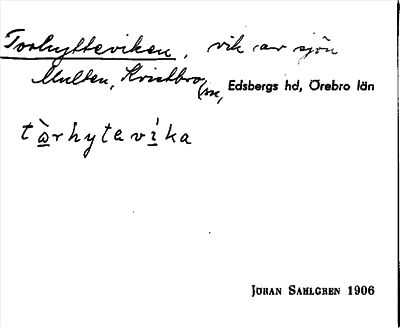 Torhytteviken, vik av sjön
Multen, Kvistbro
sn, Edsbergs hd, Örebro län
tàrhytavika
JÖRAN SAHLGREN 1906